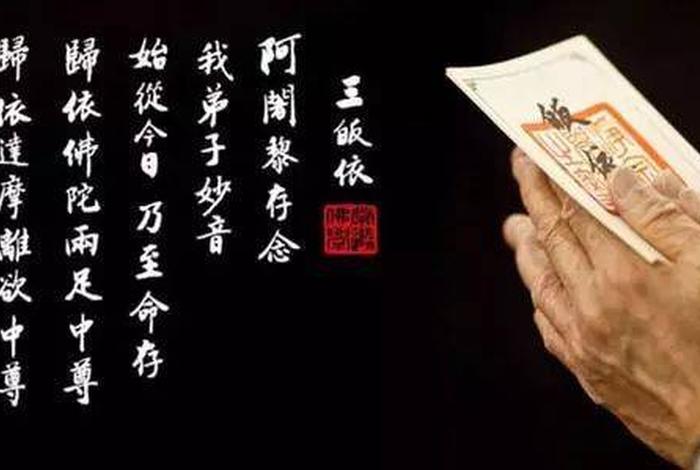 三皈依
阿闍黎存念
我弟子妙音
始從今日 乃至命存
歸依佛陀兩足中尊
歸依達摩離欲中尊
皈依